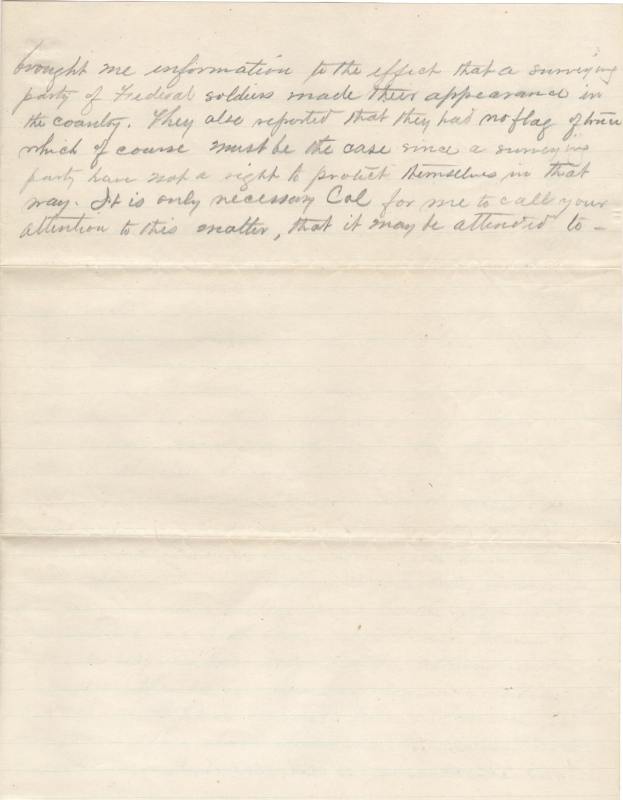 brought me information to the effect that a surveying
party of Federal soldiers made their appearance in
the country. They also reported that they had no flag of truce
which of course must be the case since a surveying
party have not a right to protect themselves in that
way. It is only necessary Col for me to call your
attention to this matter, that it may be attended to –